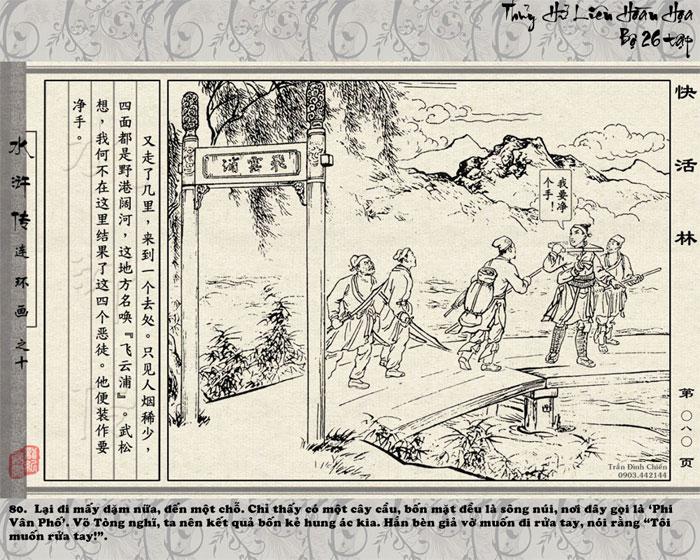 Thủy Hử Liên Hoàn Họa
Bộ 26 tập
快活林
水浒传连环画之十
又走了几里，来到一个去处。只见人烟稀少，
四面都是野港阔河，这地方名唤『飞云浦』。武松
想，我何不在这里结果了这四个恶徒。他便装作要
净手。
飛雲浦
我要净
个手！
第〇八〇页
Trần Đình Chiến
0903.442144
80. Lại đi mấy dặm nữa, đến một chỗ. Chỉ thấy có một cây cầu, bốn mặt đều là sông núi, nơi đây gọi là ‘Phi
Vân Phố’. Võ Tòng nghĩ, ta nên kết quả bốn kẻ hung ác kia. Hắn bèn giả vờ muốn đi rửa tay, nói rằng “Tôi
muốn rửa tay!”.